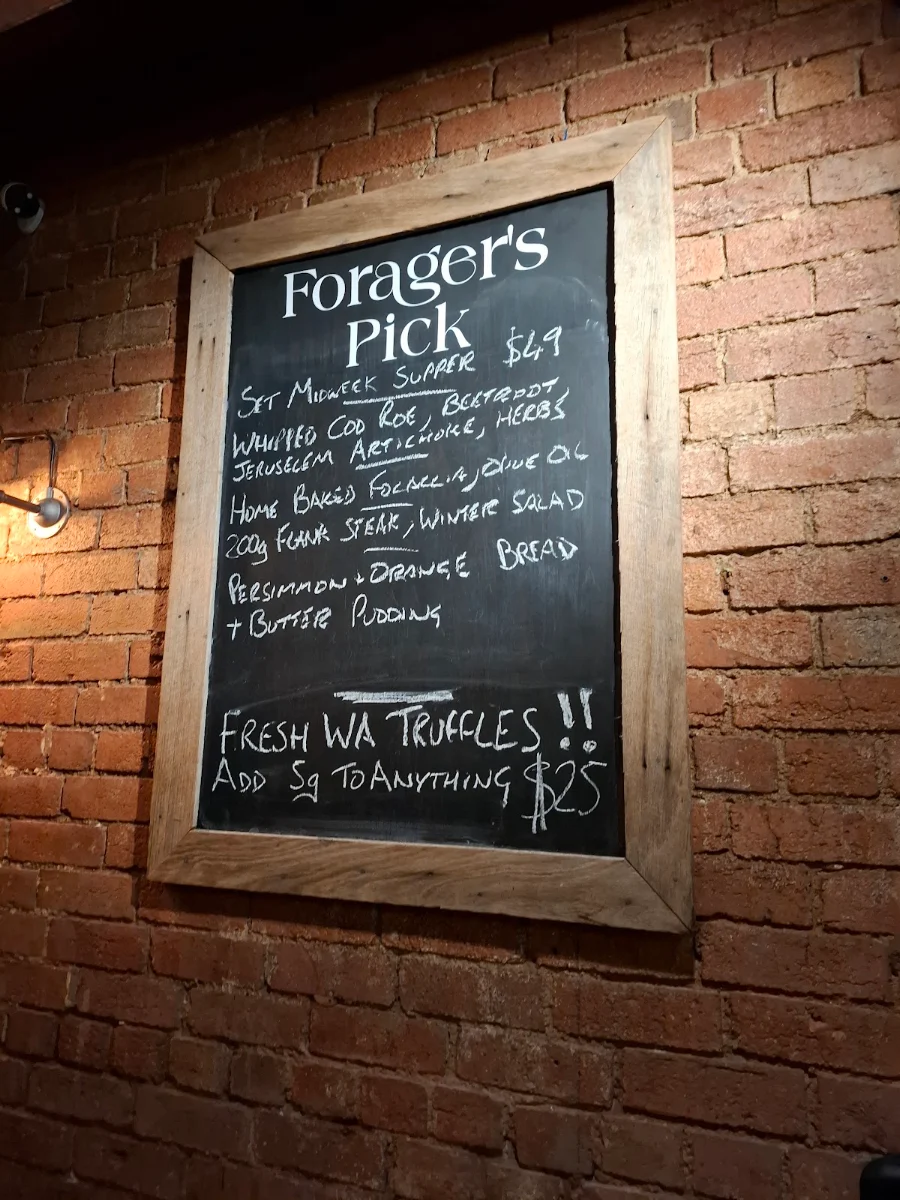 Forager's
Pick
SET MIDWEEK SUPPER $49
WHIPPED COD ROE, BEETROOT,
JERUSELEM ARTICHOKE, HERBS
HOME BAKED FOCACCIA, OLIVE OIL
200g FLANK STEAK, WINTER SALAD
PERSIMMON + ORANGE BREAD
+ BUTTER PUDDING
FRESH WA TRUFFLES!!
ADD 5g TO ANYTHING $25